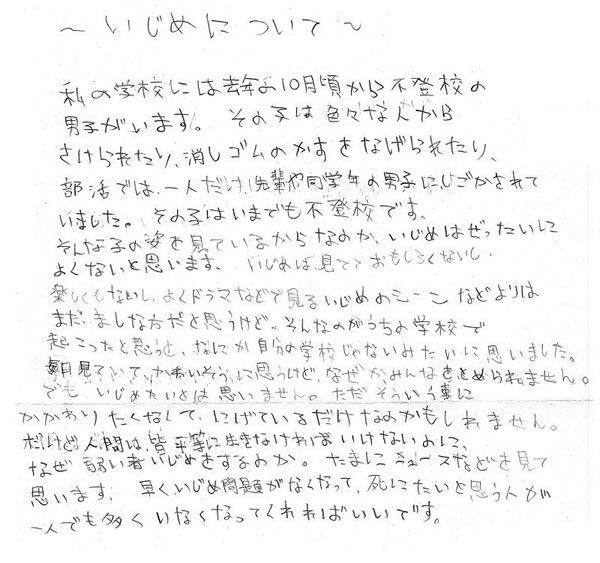 ～いじめについて～
私の学校には去年の10月頃から不登校の
男子がいます。その子は色々な人から
さけられたり、消しゴムのかすをなげられたり、
部活では、一人だけ先輩や同学年の男子にしごかされて
いました。その子はいまでも不登校です。
そんな子の姿を見ているからなのか、いじめはぜったいに
よくないと思います。いじめは見てておもしろくないし、
楽しくもないし、よくドラマなどで見るいじめのシーンなどよりは
まだ、ましな方だと思うけど。そんなのがうちの学校で
起こったと思うと、なにか自分の学校じゃないみたいに思いました。
毎日見ていて、かわいそうに思うけど、なぜか、みんなをとめられません。
でも いじめたいとは思いません。ただ そういう事に
かかわりたくなくて、にげているだけなのかもしれません。
だけど人間は、皆平等に生きなければいけないのに、
なぜ弱い者いじめをするのか。たまにニュースなどを見て
思います。早くいじめ問題がなくなって、死にたいと思う人が
一人でも多くいなくなってくれればいいです。